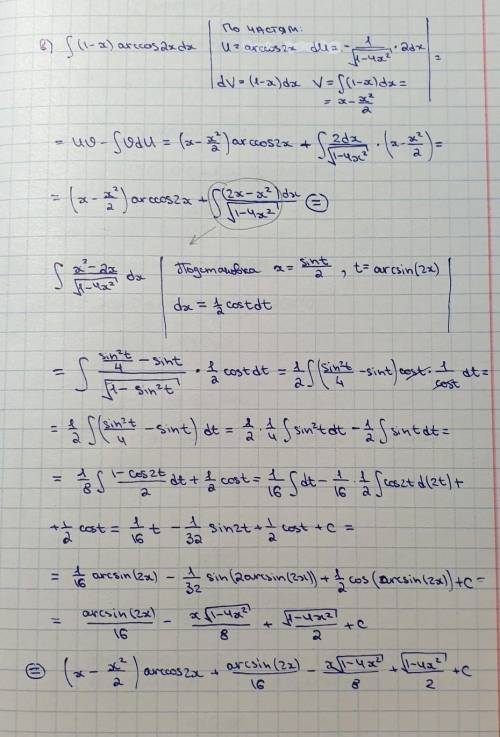 в) ∫(1-x) arccos2xdx | По частям:
u = arccos2x  du = -1/√(1-4x²) · 2dx
dV = (1-x)dx  V = ∫(1-x)dx =
= x - x²/2 | =
= uv - ∫vdu = (x - x²/2) arccos2x + ∫ 2dx/√(1-4x²) · (x - x²/2) =
= (x - x²/2) arccos2x + ∫ (2x-x²)dx/√(1-4x²) ⊜
∫ (x²-2x)/√(1-4x²) dx | Подстановка x = sint/2, t = arcsin(2x)
dx = 1/2 costdt
= ∫ (sin²t/4 - sint)/√(1-sin²t) · 1/2 costdt = 1/2 ∫(sin²t/4 - sint) cost · 1/cost dt =
= 1/2 ∫(sin²t/4 - sint) dt = 1/2 · 1/4 ∫sin²tdt - 1/2 ∫sintdt =
= 1/8 ∫ (1-cos2t)/2 dt + 1/2 cost = 1/16 ∫dt - 1/16 · 1/2 ∫cos2t d(2t) +
+ 1/2 cost = 1/16 t - 1/32 sin2t + 1/2 cost + c =
= 1/16 arcsin(2x) - 1/32 sin(2arcsin(2x)) + 1/2 cos(arcsin(2x)) + c =
= arcsin(2x)/16 - x√(1-4x²)/8 + √(1-4x²)/2 + c
⊜ (x - x²/2) arccos2x + arcsin(2x)/16 - x√(1-4x²)/8 + √(1-4x²)/2 + c